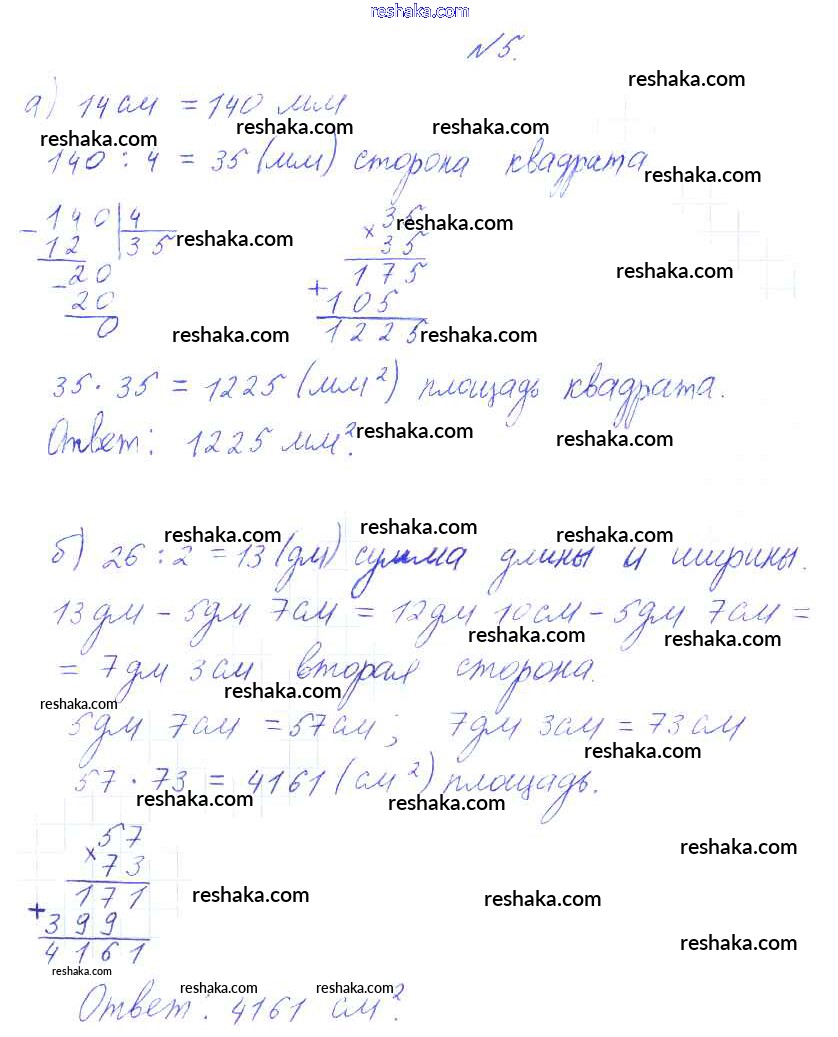 reshaka.com
№5.
reshaka.com
а) 14см = 140 мм
reshaka.com reshaka.com reshaka.com
140 : 4 = 35 (мм) сторона квадрата
reshaka.com
140 4 35
12 35 reshaka.com 35 reshaka.com
20 175 reshaka.com
20 105
0 1225
reshaka.com reshaka.com
35 · 35 = 1225 (мм²) площадь квадрата.
Ответ: 1225 мм². reshaka.com reshaka.com
reshaka.com reshaka.com reshaka.com
б) 26 : 2 = 13 (дм) сумма длины и ширины.
13дм - 5дм 7см = 12дм 10см - 5дм 7см =
reshaka.com reshaka.com
= 7дм 3см вторая сторона.
reshaka.com reshaka.com
5дм 7см = 57см; 7дм 3см = 73см
reshaka.com
57 · 73 = 4161 (см²) площадь.
reshaka.com reshaka.com
× 57
73 reshaka.com
171 reshaka.com reshaka.com
+ 399
4161 reshaka.com
reshaka.com
reshaka.com reshaka.com
Ответ: 4161 см².